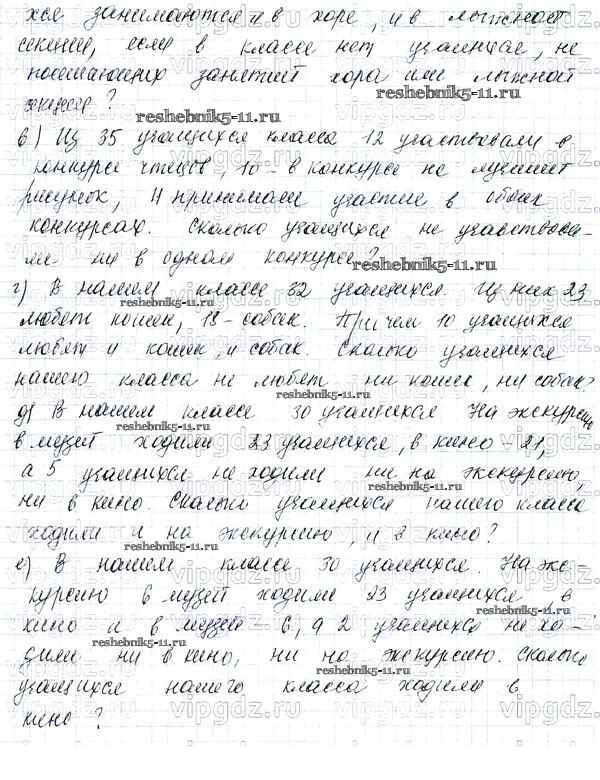 хся занимаются и в хоре, и в лыжной
секции, если в классе нет учащихся, не
посещающих занятий хора или лыжной
секции?
reshebnik5-11.ru
reshebnik5-11.ru
в) Из 35 учащихся класса 12 участвовали в
конкурсе чтецов, 10 - в конкурсе на лучший
рисунок, 4 принимали участие в обоих
конкурсах. Сколько учащихся не участвова-
ли ни в одном конкурсе?
reshebnik5-11.ru
г) В нашем классе 32 учащихся. Из них 23
reshebnik5-11.ru
любят кошек, 18 - собак. Причем 10 учащихся
любят и кошек, и собак. Сколько учащихся
нашего класса не любят ни кошек, ни собак?
reshebnik5-11.ru
д) В нашем классе 30 учащихся. На экскурсию
в музей ходили 23 учащихся, в кино - 21,
а 5 учащихся не ходили ни на экскурсию,
reshebnik5-11.ru
ни в кино. Сколько учащихся нашего класса
ходили и на экскурсию, и в кино?
reshebnik5-11.ru
е) В нашем классе 30 учащихся. На экс-
курсию в музей ходили 23 учащихся, в
кино и в музей - 6, а 2 учащихся не хо-
reshebnik5-11.ru
дили ни в кино, ни на экскурсию. Сколько
reshebnik5-11.ru
учащихся нашего класса ходили в
кино?
vipgdz.ru